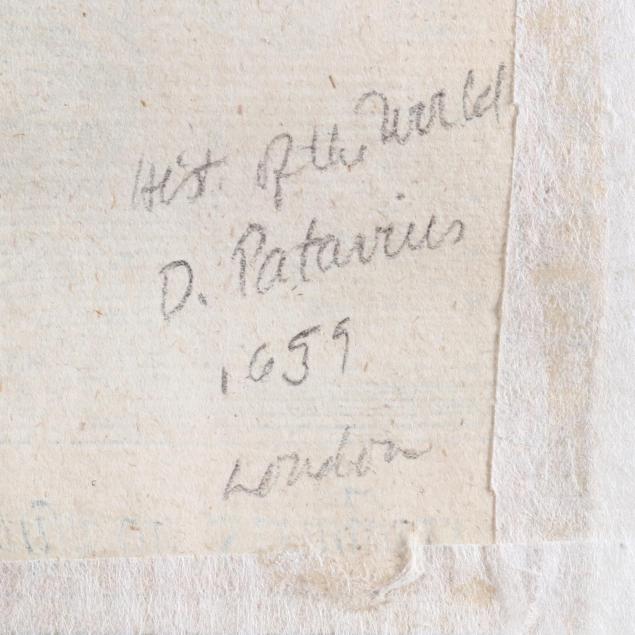 Hist. of the World
D. Patavius
1659
London